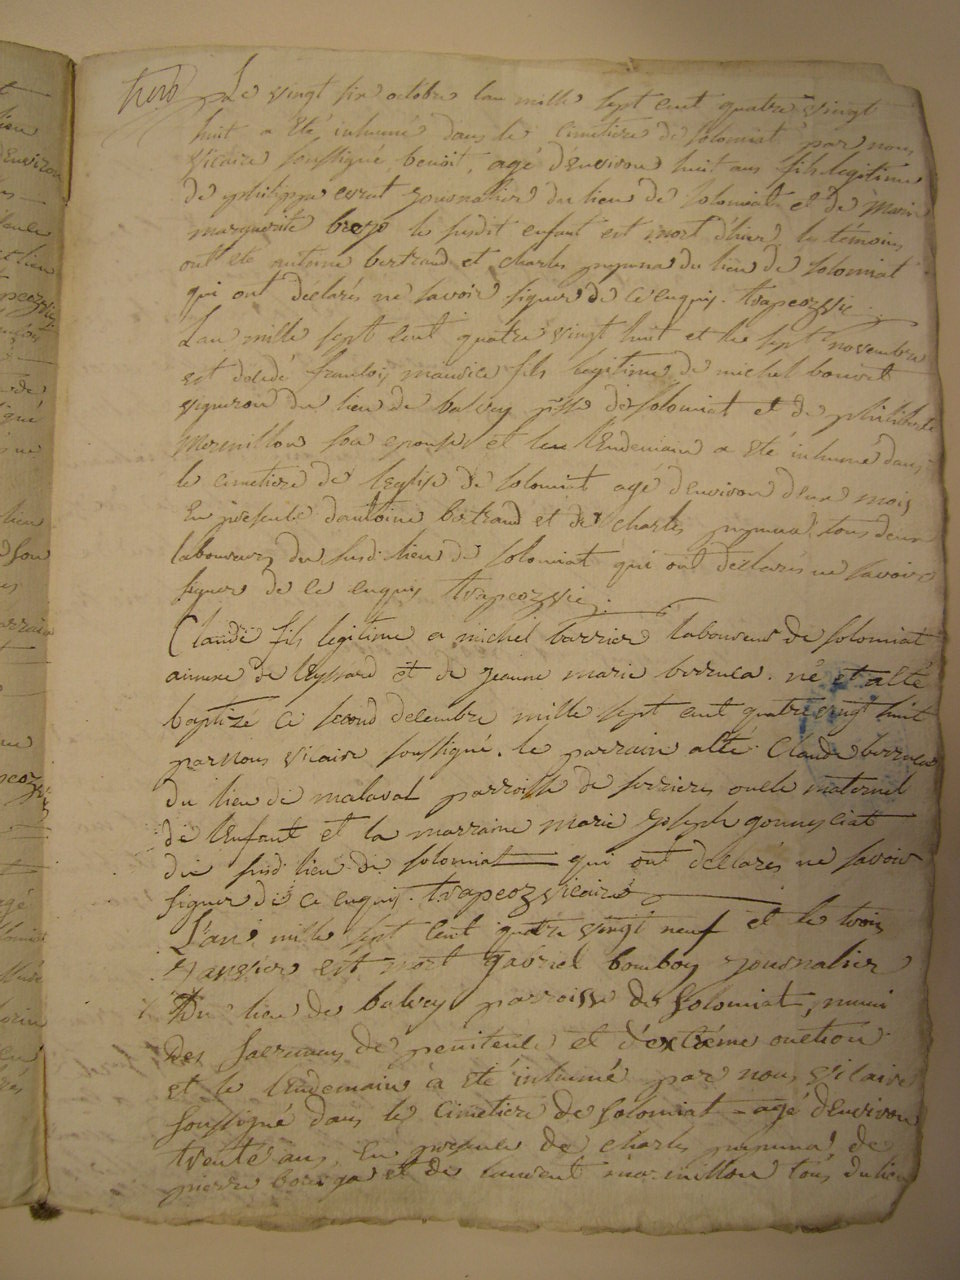 Le vingt six octobre lan mille sept cent quatre vingt
huit a été inhumé dans le cimetiere de solomiat par nous
vicaire soussigné, benoit, agé d'environ huit ans fils legitime
de philippe journalier du lieu de solomiat et de Marie
marguerite le susdit enfant est mort d'hier, les témoins
ont eté antoine bertrand et charles du lieu de solomiat
qui ont declarés ne savoir signer de ce enquis. trapeoz vic
Lan mille sept cent quatre vingt huit et le sept novembre
est décédé francois maurice fils legitime de michel bouvet
vigneron du lieu de balvay psse de solomiat et de philiberte
Mermillon son epouse et le lendemain a été inhumé dans
le cimetiere de leglise de solomiat agé d'environ deux mois
en presence d'antoine bertrand et de charles tous deux
laboureurs du susd. lieu de solomiat qui ont declarés ne savoir
signer de ce enquis trapeoz vic.
Claude fils legitime a michel barrier laboureur de solomiat
annexe de leyssard et de jeanne marie né et a été
baptizé ce second decembre mille sept cent quatre vingt huit
par nous vicaire soussigné. le parrain a été Claude
du lieu de malaval parroisse de serrieres oncle maternel
de l'enfant et la marraine marie joseph
du susd lieu de solomiat qui ont declarés ne savoir
signer de ce enquis. trapeoz vicaire
L'an mille sept cent quatre vingt neuf et le trois
janvier est mort gabriel bomboy journalier
Du lieu de balvay parroisse de solomiat, muni
des sacremens de penitence et d'extrême onction
et le lendemain a été inhumé par nous vicaire
soussigné dans le cimetiere de solomiat agé d'environ
trente ans, en presence de charles de
pierre et de laurent mermillon tous du lieu